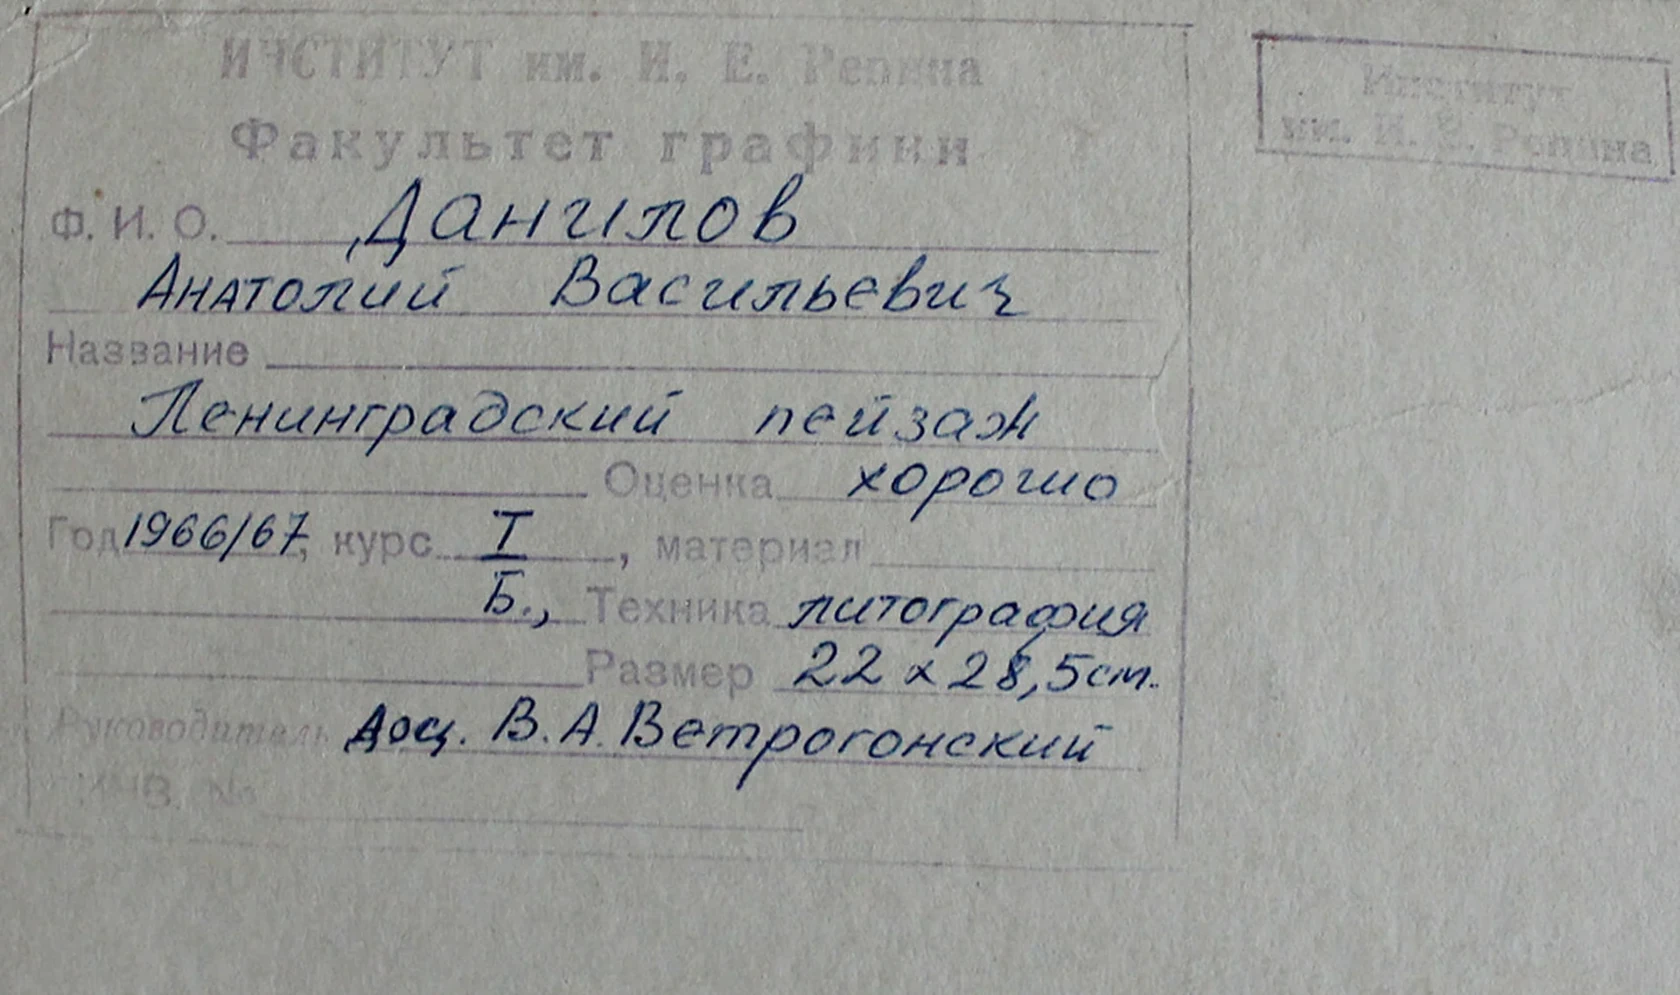 ИНСТИТУТ им. И. Е. Репина
Факультет графики
Ф. И. О. Данилов
Анатолий Васильевич
Название
Ленинградский пейзаж
Оценка хорошо
Год 1966/67, курс I, материал
Б., Техника литография
Размер 22 x 28,5 см.
Руководитель доц. В. А. Ветрогонский
ИНВ. №
Институт
им. И. Е. Репина